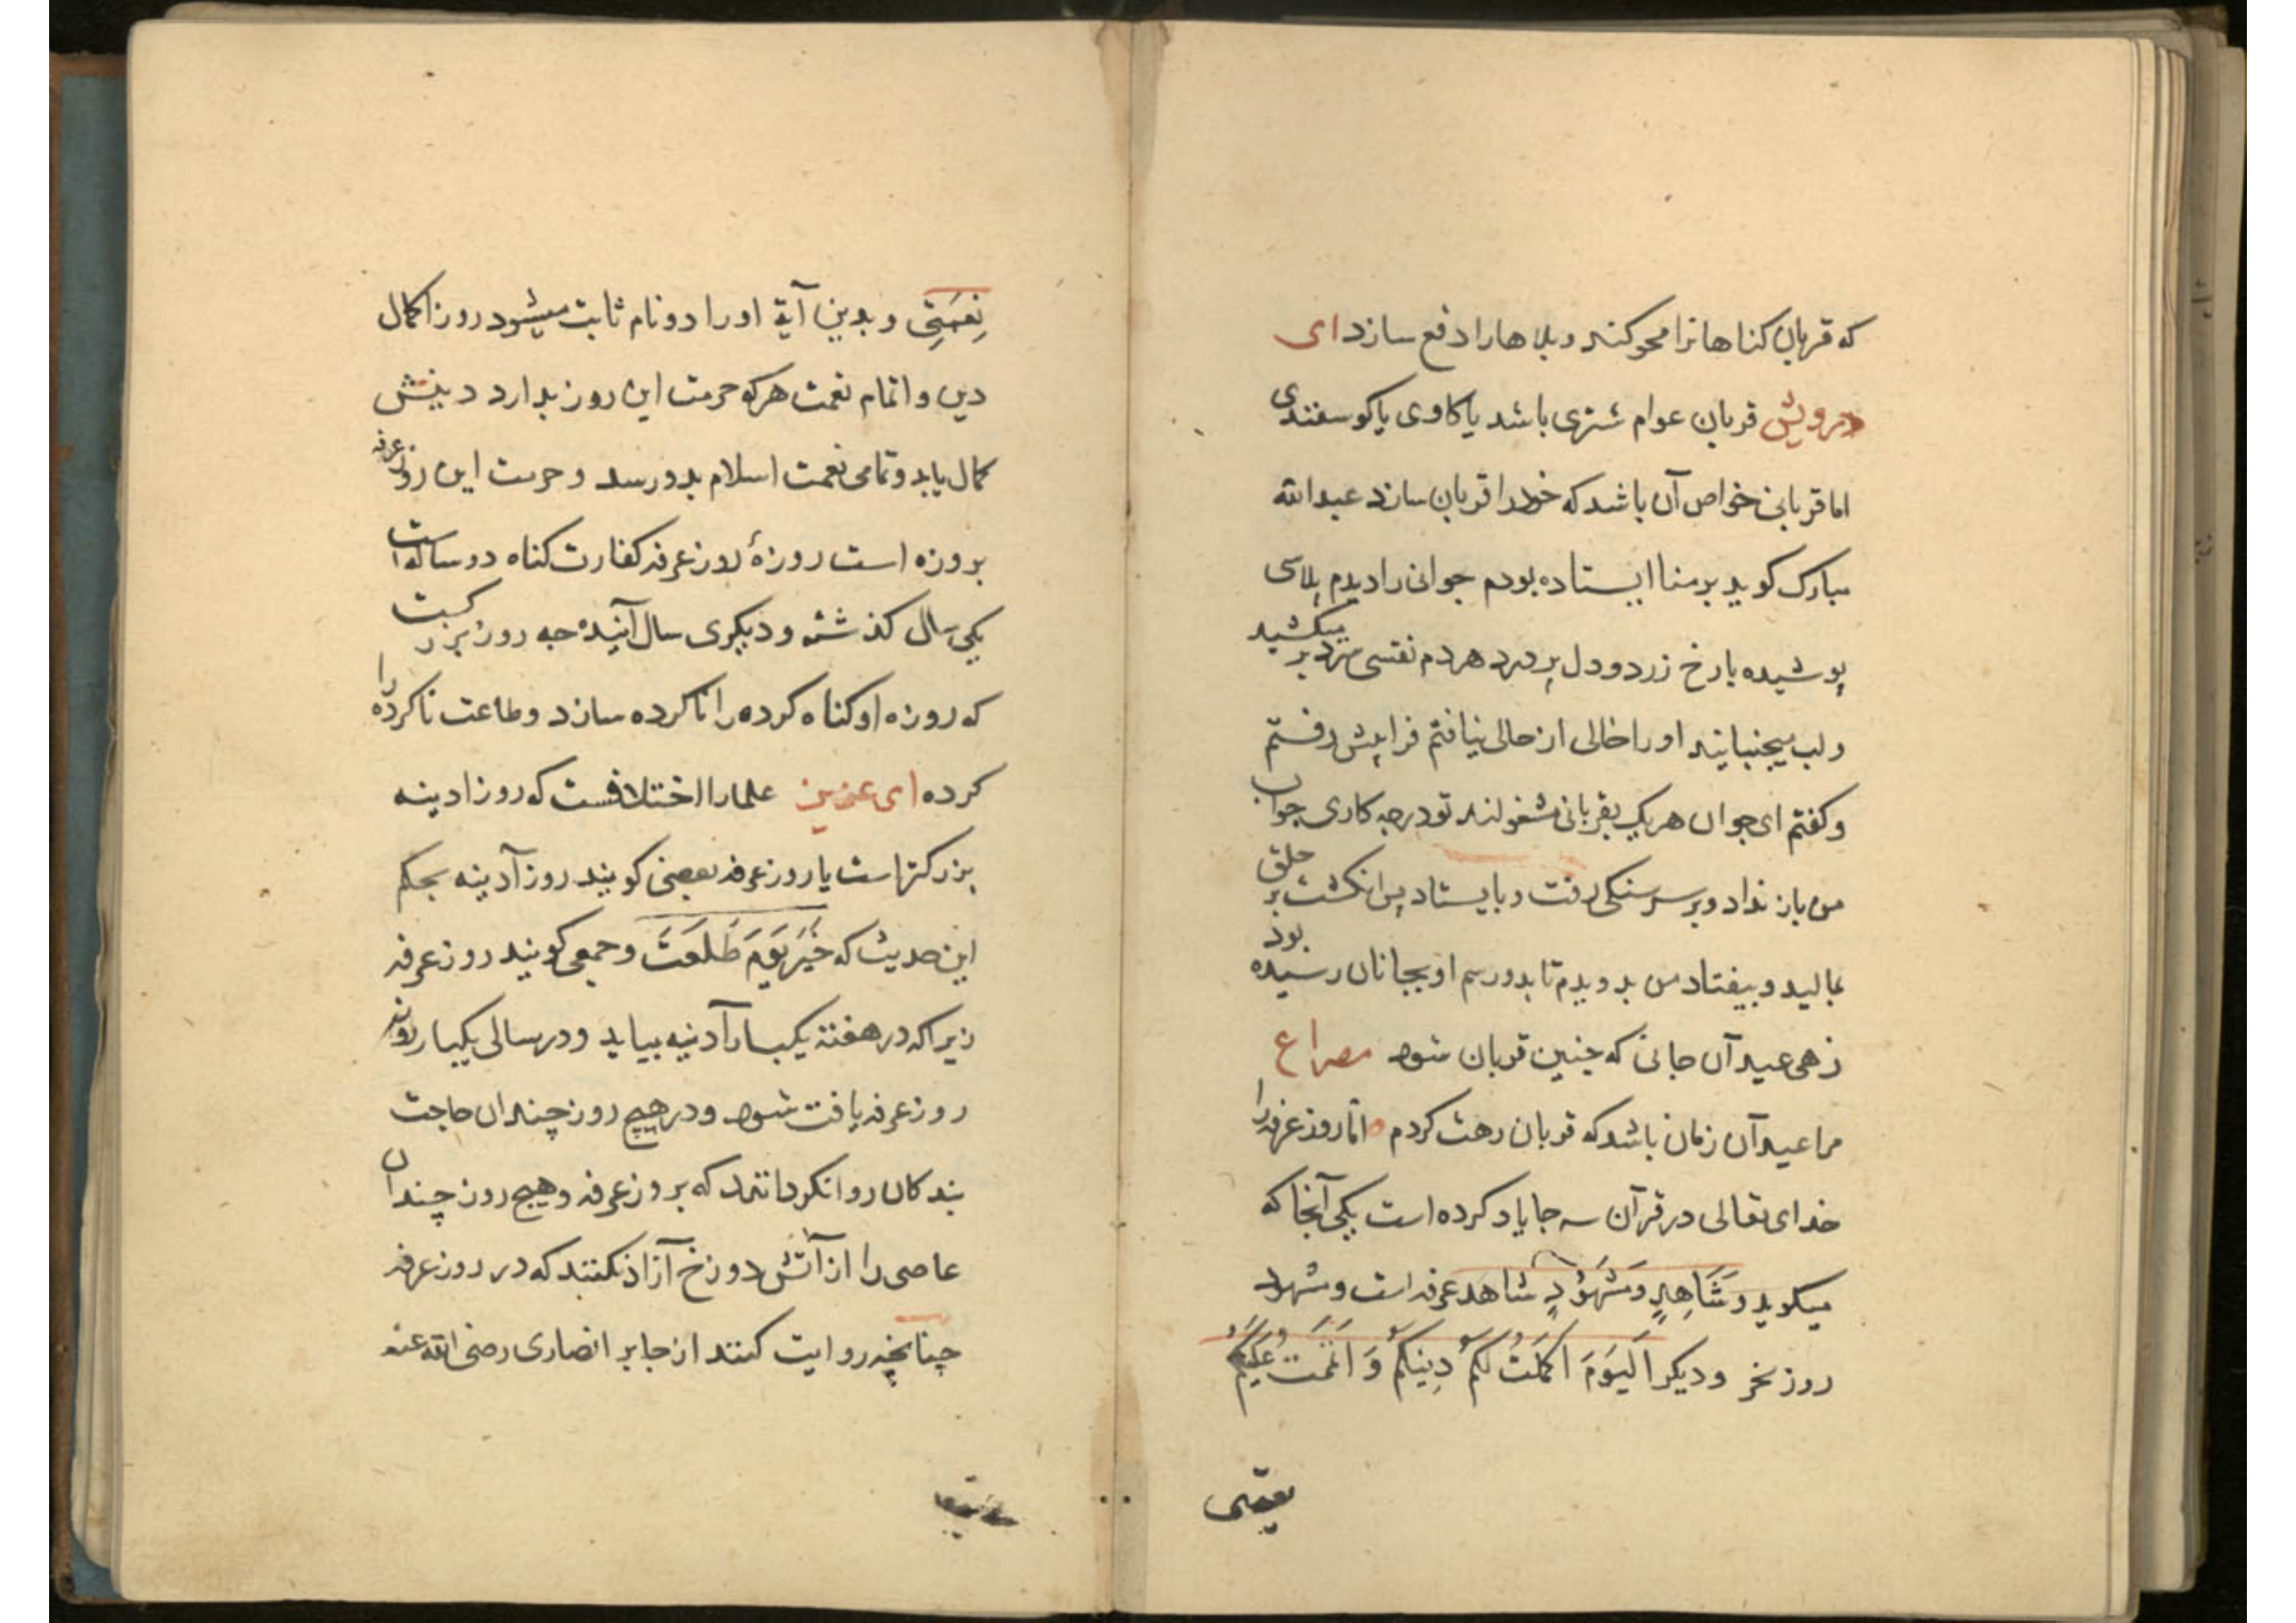 که قربان کناهانرا محو کند و بلاهارا دفع سازد ای
درویش قربان عوام شتری باشد یا کاوی یا کوسفندی
اما قربانی خواص آن باشد که خودرا قربان سازد عبدالله
مبارک کوید بر منا ایستاده بودم جوانی را دیدم پلاسی
پوشیده با رخ زرد و دل پر درد هردم نفسی سرد بر میکشید
و لب میجنبانید اورا خالی از حالی نیافتم فرا پیش رفتم
و کفتم ای جوان هر یک بقربانی مشغولند تو در چه کاری جواب
من باز نداد و بر سر سنکی رفت و بایستاد پس انکشت بر حلق
بمالید و بیفتاد من بدویدم تا بدو رسم او بجانان رسیده بود
زهی عید آن جانی که چنین قربان شود مصراع
مرا عید آن زمان باشد که قربان رهت کردم اما روز عرفه را
خدای تعالی در قرآن سه جا یاد کرده است یکی آنجا که
میکوید وَشَاهِدٍ وَمَشْهُوْدٍ شاهد عرفه است و مشهود
روز نحر و دیکر اَلْیَوْمَ اَکْمَلْتُ لَکُمْ دِینَکُمْ وَ اَتْمَمْتُ عَلَیْکُمْ
نعمتی
نِعْمَتِی و بدین آیة اورا دو نام ثابت میشود روز اکمال
دین و اتمام نعمت هرکه حرمت این روز بدارد دینش
کمال یابد و تمامی نعمت اسلام بدو رسد و حرمت این روز عرفه
بروزه است روزهٔ روز عرفه کفارت کناه دو ساله است
یکی سال کذشته و دیکری سال آینده چه روز بزرکیست
که روزه او کناه کرده را ناکرده سازد و طاعت ناکرده را
کرده ای عزیز علمارا اختلافست که روز ادینه
بزرکتر است یا روز عرفه بعضی کویند روز آدینه بحکم
این حدیث که خَیْرَ یَوْمَ طَلَعَتْ و جمعی کویند روز عرفه
زیرا که در هفته یکبار آدینه بیاید و در سالی یکبار
روز عرفه یافت شود و در هیچ روز چندان حاجت
بندکان روا نکردانند که بروز عرفه و هیچ روز چندان
عاصی را از آتش دوزخ آزاد نکنند که در روز عرفه
چنانچه روایت کنند از جابر انصاری رضی الله عنه